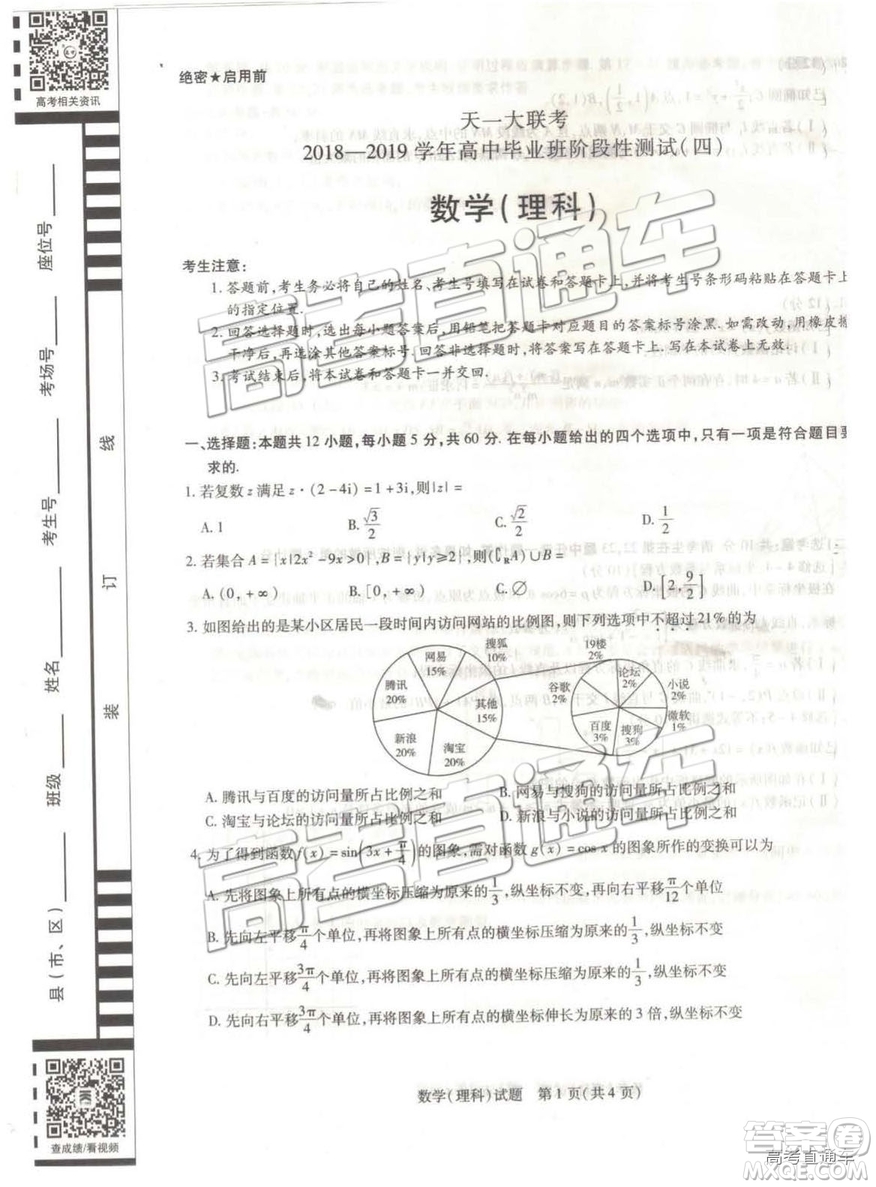 高考相关资讯
绝密★启用前
天一大联考
2018—2019 学年高中毕业班阶段性测试(四)
数学(理科)
考生注意:
1. 答题前,考生务必将自己的姓名、考生号填写在试卷和答题卡上,并将考生号条形码粘贴在答题卡上
的指定位置.
2. 回答选择题时,选出每小题答案后,用铅笔把答题卡对应题目的答案标号涂黑. 如需改动,用橡皮擦
干净后,再选涂其他答案标号. 回答非选择题时,将答案写在答题卡上. 写在本试卷上无效.
3. 考试结束后,将本试卷和答题卡一并交回.
一、选择题:本题共 12 小题,每小题 5 分,共 60 分. 在每小题给出的四个选项中,只有一项是符合题目要
求的.
1. 若复数 z 满足 z·(2-4i)=1+3i,则|z|=
A. 1 B. √3/2 C. √2/2 D. 1/2
2. 若集合 A={x|2x²-9x>0},B={y|y≥2},则(∁RA)∪B=
A. (0,+∞) B. [0,+∞) C. ∅ D. [2,9/2]
3. 如图给出的是某小区居民一段时间内访问网站的比例图,则下列选项中不超过 21% 的为
搜狐 10%
网易 15%
腾讯 20%
其他 15%
新浪 20%
淘宝 20%
19楼 2%
论坛 2%
谷歌 2%
小说 2%
微软 1%
百度 3%
搜狗 3%
A. 腾讯与百度的访问量所占比例之和 B. 网易与搜狗的访问量所占比例之和
C. 淘宝与论坛的访问量所占比例之和 D. 新浪与小说的访问量所占比例之和
4. 为了得到函数 f(x)=sin(3x+π/4)的图象,需对函数 g(x)=cos x 的图象所作的变换可以为
A. 先将图象上所有点的横坐标压缩为原来的1/3,纵坐标不变,再向右平移π/12个单位
B. 先向左平移π/4个单位,再将图象上所有点的横坐标压缩为原来的1/3,纵坐标不变
C. 先向左平移3π/4个单位,再将图象上所有点的横坐标压缩为原来的1/3,纵坐标不变
D. 先向右平移3π/4个单位,再将图象上所有点的横坐标伸长为原来的 3 倍,纵坐标不变
数学(理科)试题 第 1 页(共 4 页)
座位号
考场号
考生号
姓名
班级
县(市、区)
线
订
装
查成绩/看视频
高考直通车
高考直通车
高考直通车
答案圈
高考直通车
MXQE.COM